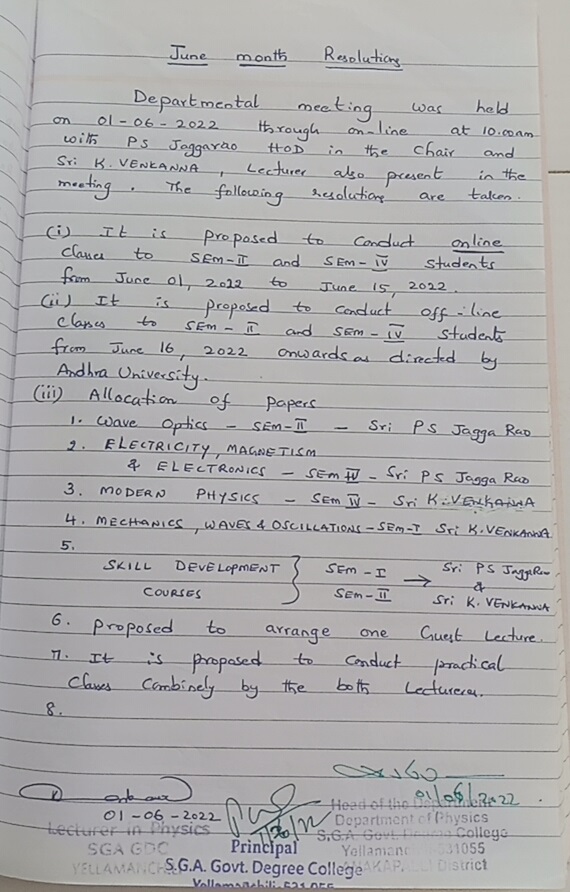 June month Resolutions
Departmental meeting was held
on 01-06-2022 through on-line at 10.00am
with PS Jaggarao HOD in the Chair and
Sri K. VENKANNA, Lecturer also present in the
meeting. The following resolutions are taken.
(i) It is proposed to Conduct online
classes to SEM-II and SEM-IV students
from June 01, 2022 to June 15, 2022.
(ii) It is proposed to conduct off-line
classes to SEM-II and SEM-IV students
from June 16, 2022 onwards as directed by
Andhra University.
(iii) Allocation of papers
1. Wave Optics - SEM-II - Sri PS Jagga Rao
2. ELECTRICITY, MAGNETISM
& ELECTRONICS - SEM IV - Sri PS Jagga Rao
3. MODERN PHYSICS - SEM IV - Sri K. VENKANNA
4. MECHANICS, WAVES & OSCILLATIONS - SEM-I Sri K. VENKANNA
5.
SKILL DEVELOPMENT } SEM-I → Sri PS JaggaRao
&
COURSES SEM-II Sri K. VENKANNA
6. proposed to arrange one Guest Lecture.
7. It is proposed to Conduct practical
Classes Combinely by the both Lecturers.
8.
01/06/2022
01-06-2022
Head of the Department
Lecturer in Physics
Department of Physics
SGA GDC
Principal
S.G.A. Govt. Degree College
YELLAMANCHILI
S.G.A. Govt. Degree College
531055
District
Yellamanchili-531 055